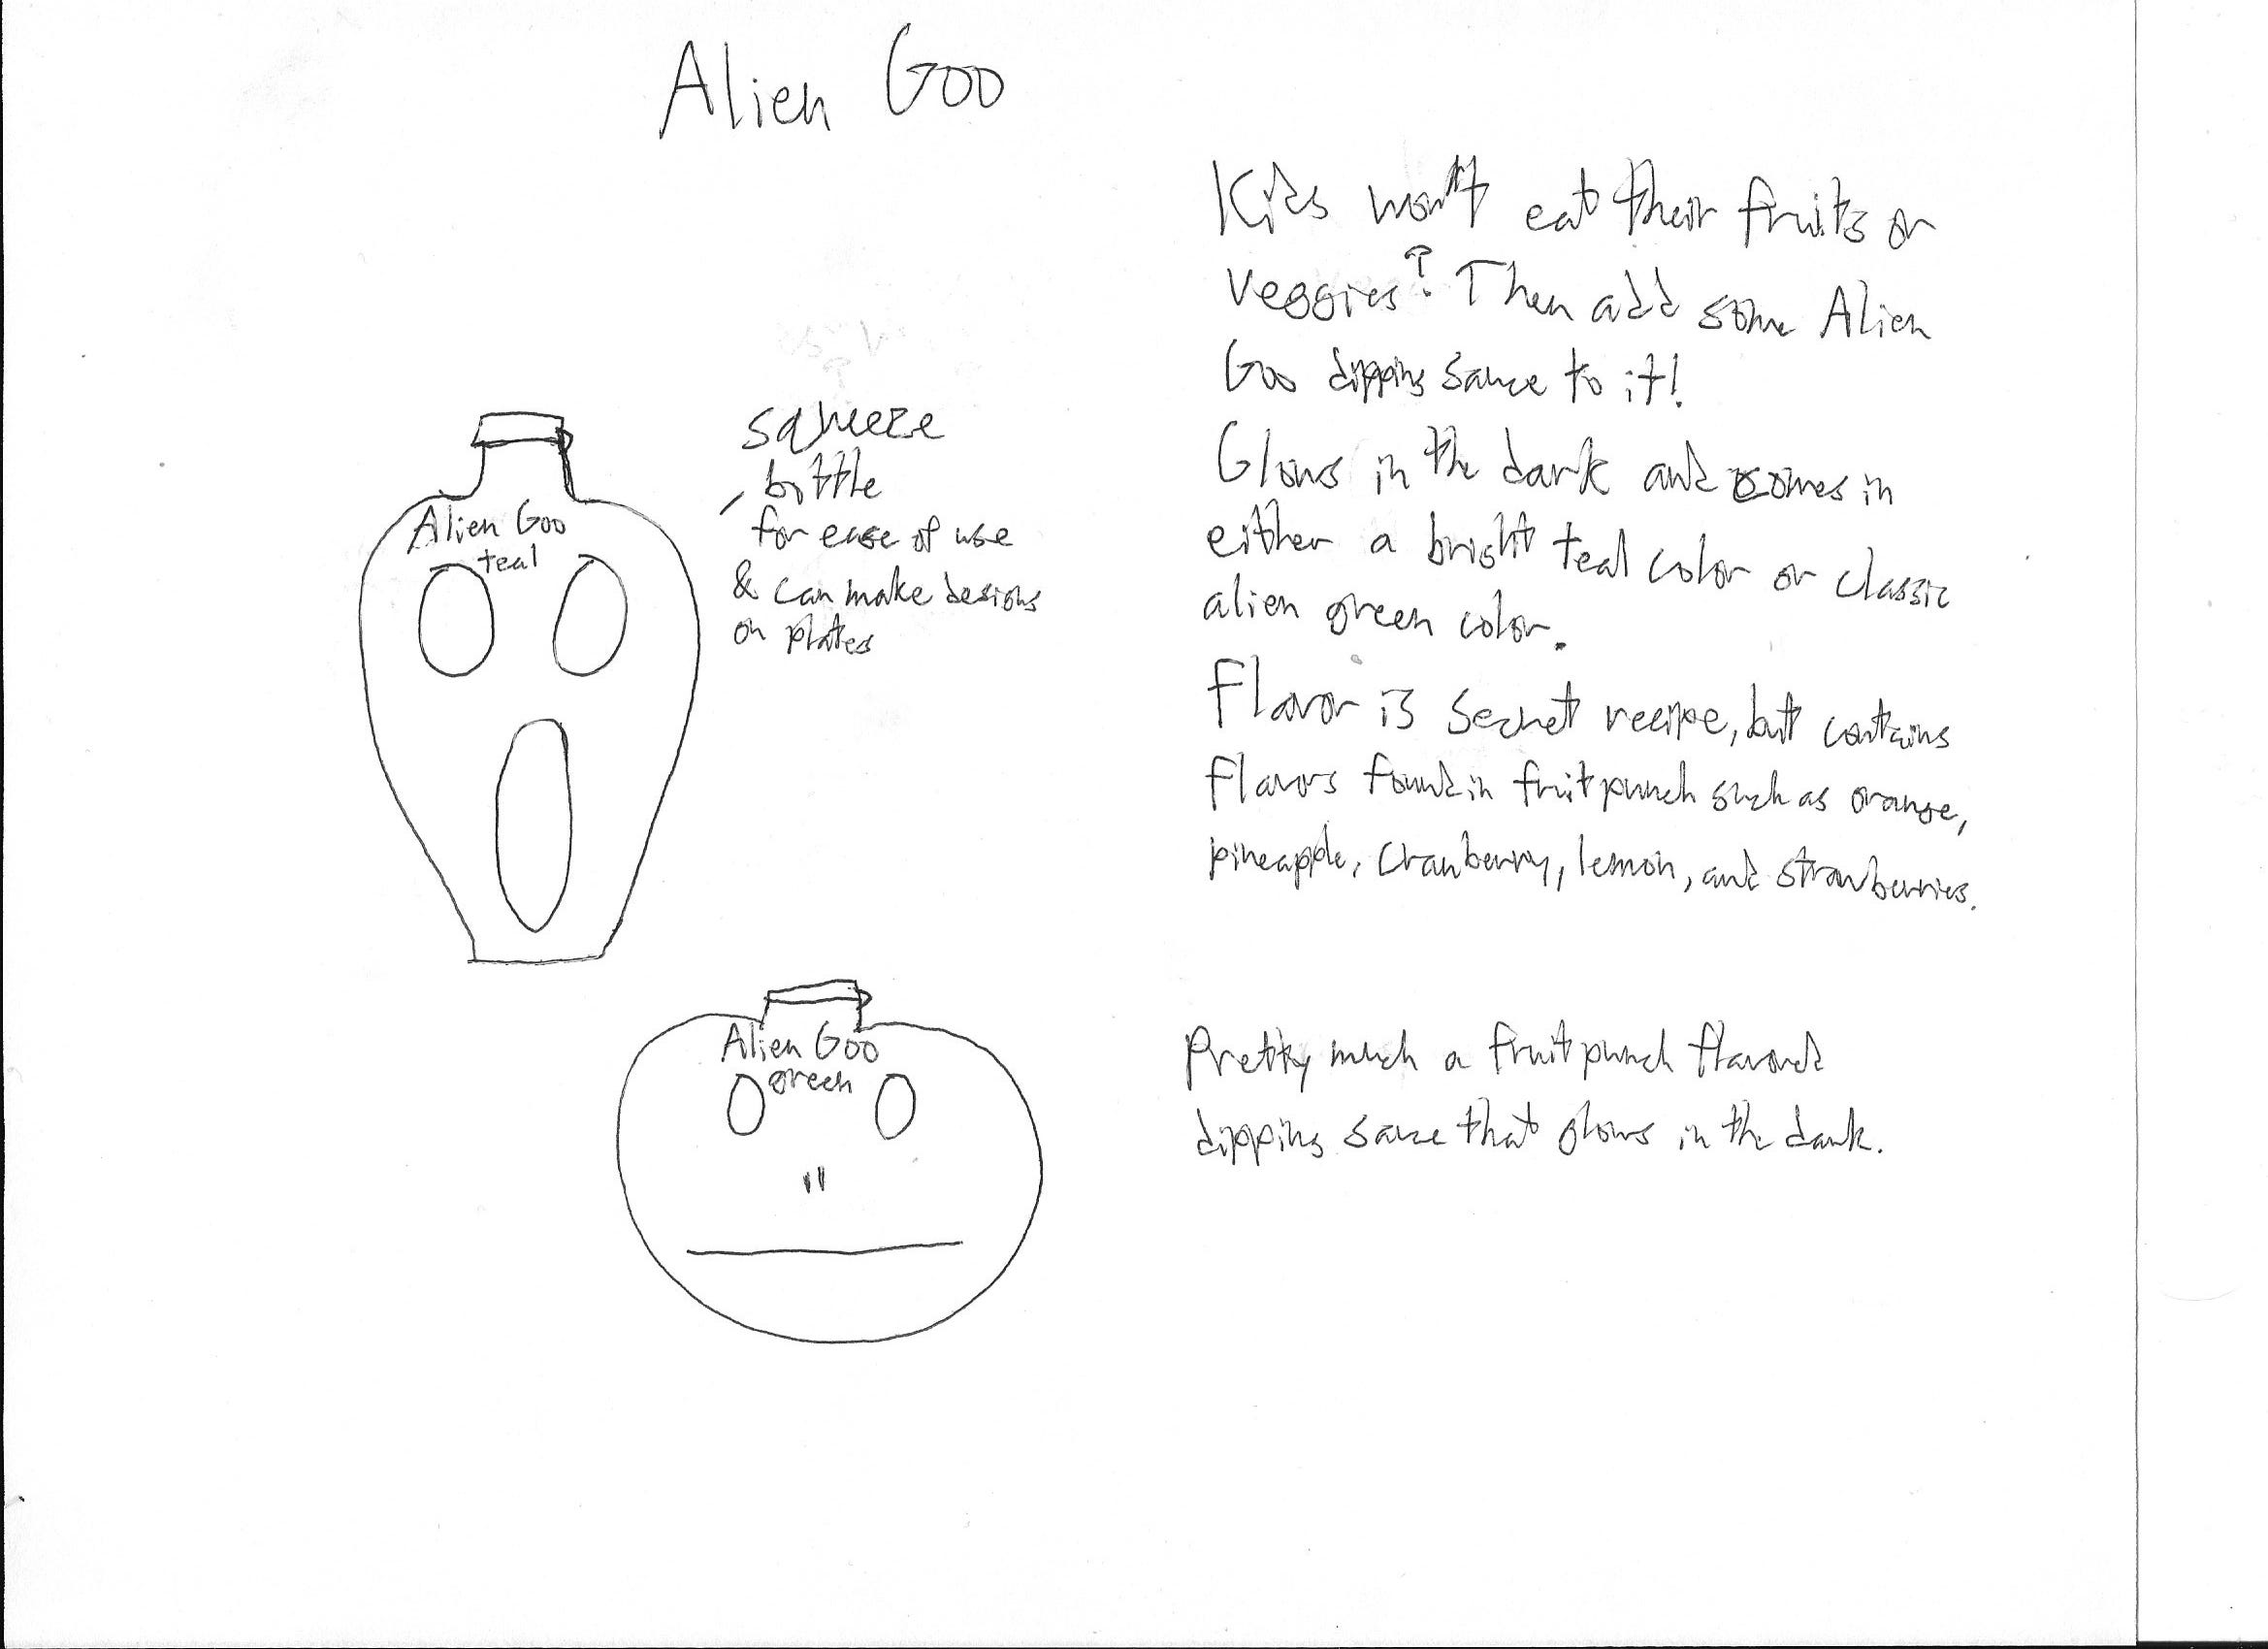 Alien Goo
Kids won't eat their fruits or
veggies? Then add some Alien
Goo dipping sauce to it!
Glows in the dark and comes in
either a bright teal color or classic
alien green color.
Flavor is secret recipe, but contains
flavors found in fruit punch such as orange,
pineapple, cranberry, lemon, and strawberries.
Pretty much a fruit punch flavored
dipping sauce that glows in the dark.
squeeze
bottle
for ease of use
& can make designs
on plates
Alien Goo
teal
Alien Goo
green